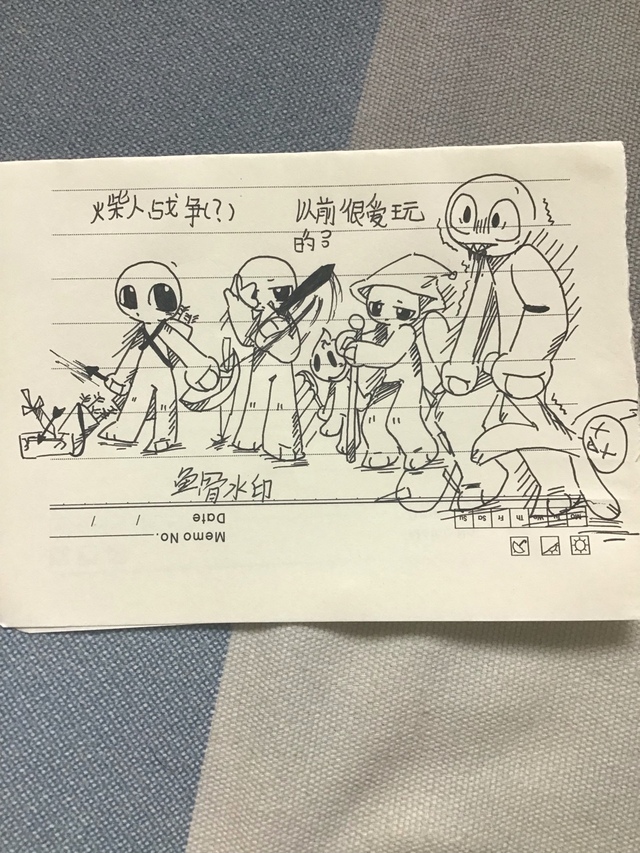 火柴人战争(?)
以前很爱玩
的?
鱼骨水印
Memo No.
Date / /
Mo Tu We Th Fr Sa Su